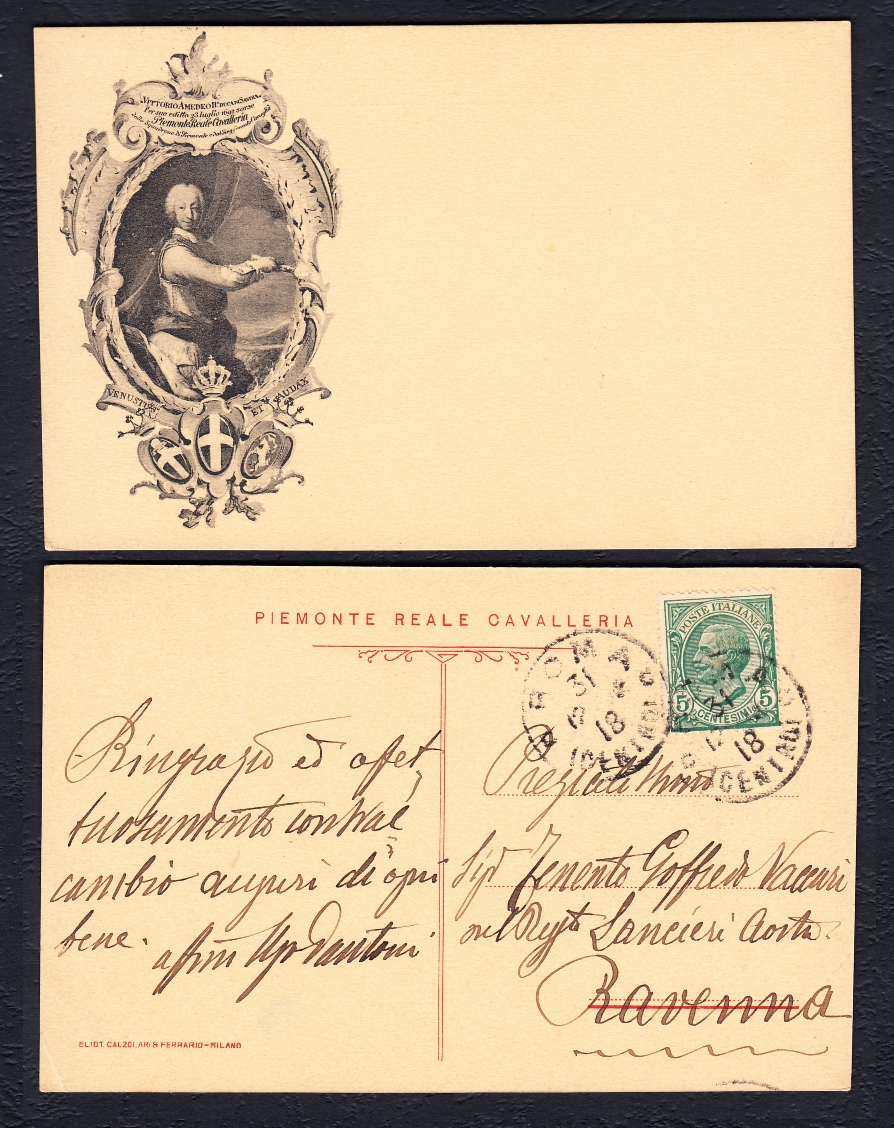 VITTORIO AMEDEO II° DUCA DI SAVOIA
Per suo editto 23 luglio 1692 sorse
Piemonte Reale Cavalleria
dallo Squadrone di Piemonte e dai
VENUSTUS
ET AUDAX
PIEMONTE REALE CAVALLERIA
POSTE ITALIANE
5 5
CENTESIMI
ROMA
31
18
CENTRO
18
CENTRO
Ringrazio ed affet
tuosamente
cambio auguri di ogni
bene.
affmo Ugo Dantoni
Pregiatissimo
Sigr Tenente Goffredo Vaccari
nel Reggto Lancieri Aosta
Ravenna
ELIOT. CALZOLARI & FERRARIO-MILANO